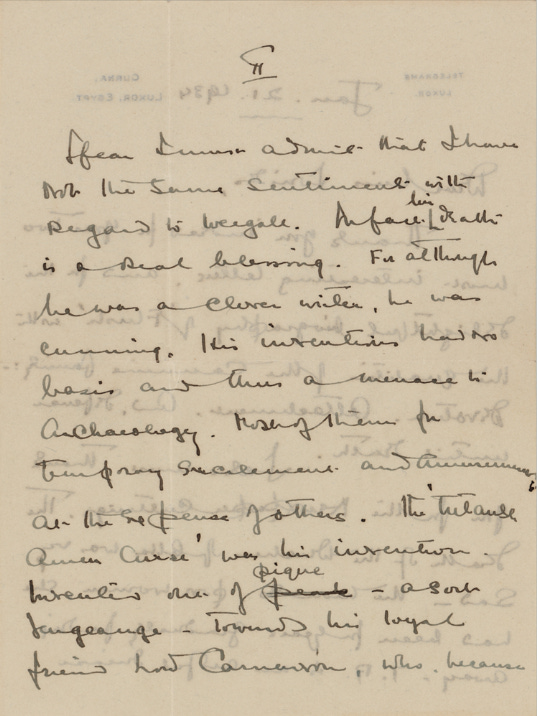 II
I fear I must admit that I have
not the same sentiment with
regard to Weigall. In fact his death
is a real blessing. For although
he was a clever writer, he was
cunning. His inventions had no
basis and thus a menace to
Archaeology. Most of them for
temporary excitement and amusement,
at the expense of others. The 'Tutankh
Amen Curse' was his invention.
Invented out of pique - a sort
Vengeange - towards his loyal
friend Lord Carnarvon, who, because
TELEGRAMS
LUXOR.
Jan. 21. 1934
GURNA,
LUXOR, EGYPT